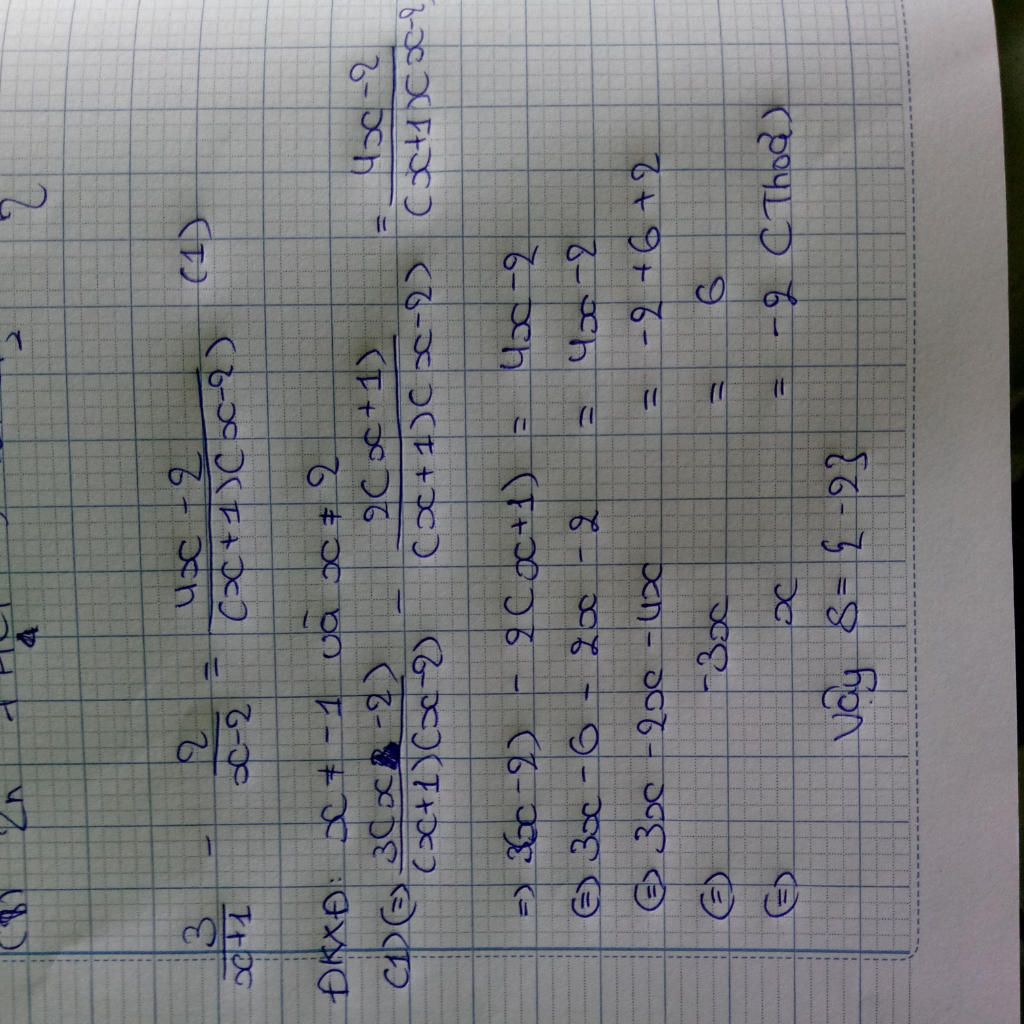 2n + HCl
3/(x+1) - 2/(x-2) = (4x-2)/((x+1)(x-2)) (1)
ĐKXĐ: x ≠ -1 và x ≠ 2
(1) (=) 3(x-2)/((x+1)(x-2)) - 2(x+1)/((x+1)(x-2)) = (4x-2)/((x+1)(x-2)
=) 3(x-2) - 2(x+1) = 4x-2
(=) 3x-6-2x-2 = 4x-2
(=) 3x-2x-4x = -2+6+2
(=) -3x = 6
(=) x = -2 (Thoả)
Vậy S = {-2}